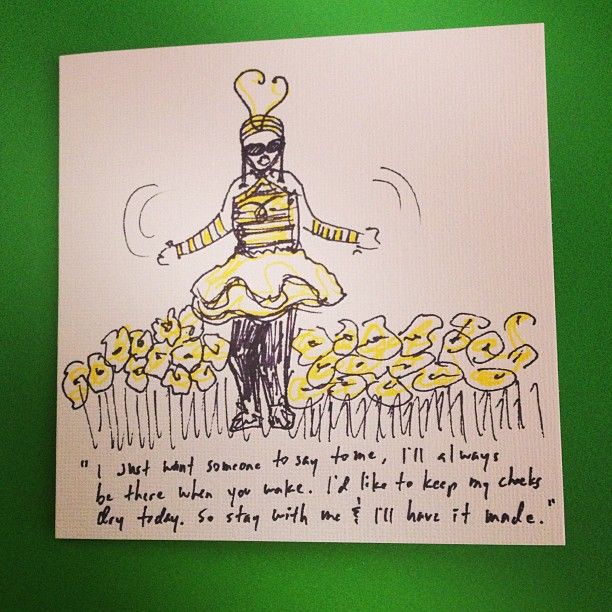 "I just want someone to say to me, I'll always
be there when you wake. I'd like to keep my cheeks
dry today. So stay with me & I'll have it made."